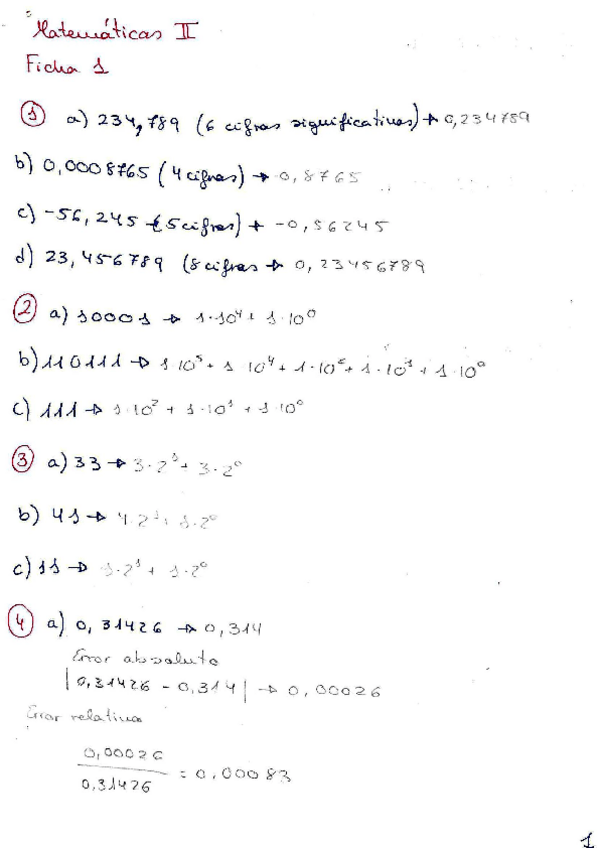 Matemáticas II
Ficha 1
① a) 234,789 (6 cifras significativas) → 0,234789
b) 0,0008765 (4 cifras) → 0,8765
c) -56,245 (5 cifras) → -0,56245
d) 23,456789 (8 cifras → 0,23456789
② a) 10001 → 1·10⁴ + 1·10⁰
b) 110111 → 1·10⁵ + 1·10⁴ + 1·10² + 1·10¹ + 1·10⁰
c) 111 → 1·10² + 1·10¹ + 1·10⁰
③ a) 33 → 3·2¹ + 3·2⁰
b) 41 → 4·2¹ + 1·2⁰
c) 11 → 1·2¹ + 1·2⁰
④ a) 0,31426 → 0,314
Error absoluto
|0,31426 - 0,314| → 0,00026
Error relativo
0,00026
0,31426
= 0,00083
1